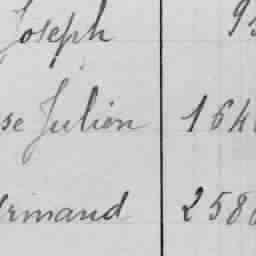 Joseph 95
se Julien 164
Armand 258